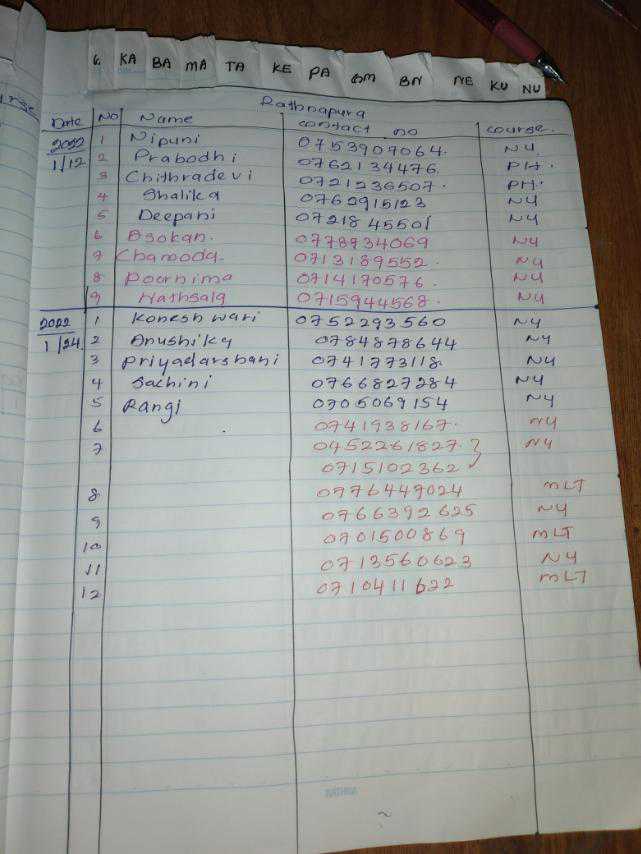 G. KA BA MA TA KE PA GM BN NE KU NU
Rathnapura
Date No Name contact no course.
2022 1 Nipuni 0753907064. NU
1/12 2 Prabodhi 0762134476. PH.
3 Chithradevi 0721236507. PH.
4 Shalika 0760915123 NU
5 Deepani 0721845501 NU
6 Asokan. 0778934069 NU
7 Chamoda. 0713189552. NU
8 Poornima 0714170576. NU
9 Hathsala 0715944568. NU
2022 1 Koneshwari 0752293560 NU
1/24 2 Anushika 0784878644 NU
3 Priyadarshani 0741773118. NU
4 Sachini 0766827284 NU
5 Rangi 0705069154 NU
6 0741938167. NU
7 0452261827. NU
0715102362
8 0776449024 MLT
9 0766392625 NU
10 0701500869 MLT
11 0713560623 NU
12 0710411622 MLT